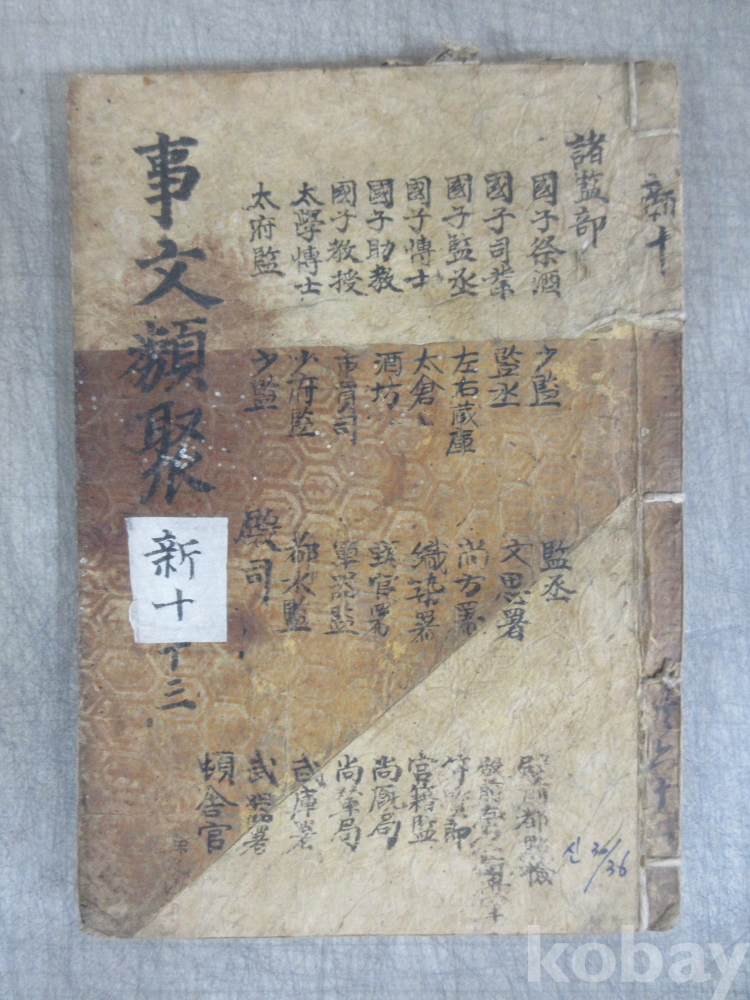 新十
諸監部
國子祭酒
國子司業
國子監丞
國子博士
國子助教
國子教授
太學博士
太府監
少監
監丞
左右藏庫
太倉
酒坊
市買司
少府監
少監
監丞
文思署
尚方署
織染署
甄官署
軍器監
都水監
殿司
殿前都點檢
宮籍監
尚廐局
尚輦局
武庫署
武器署
頓舍官
事文類聚
新十
十三
신 30/36
kobay